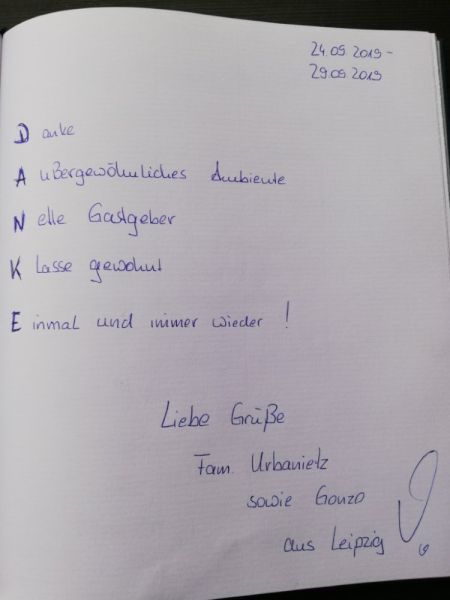 24.09.2019 -
29.09.2019
Danke
Außergewöhnliches Ambiente
Nette Gastgeber
Klasse gewohnt
Einmal und immer wieder !
Liebe Grüße
Fam. Urbanietz
sowie Gonzo
aus Leipzig !